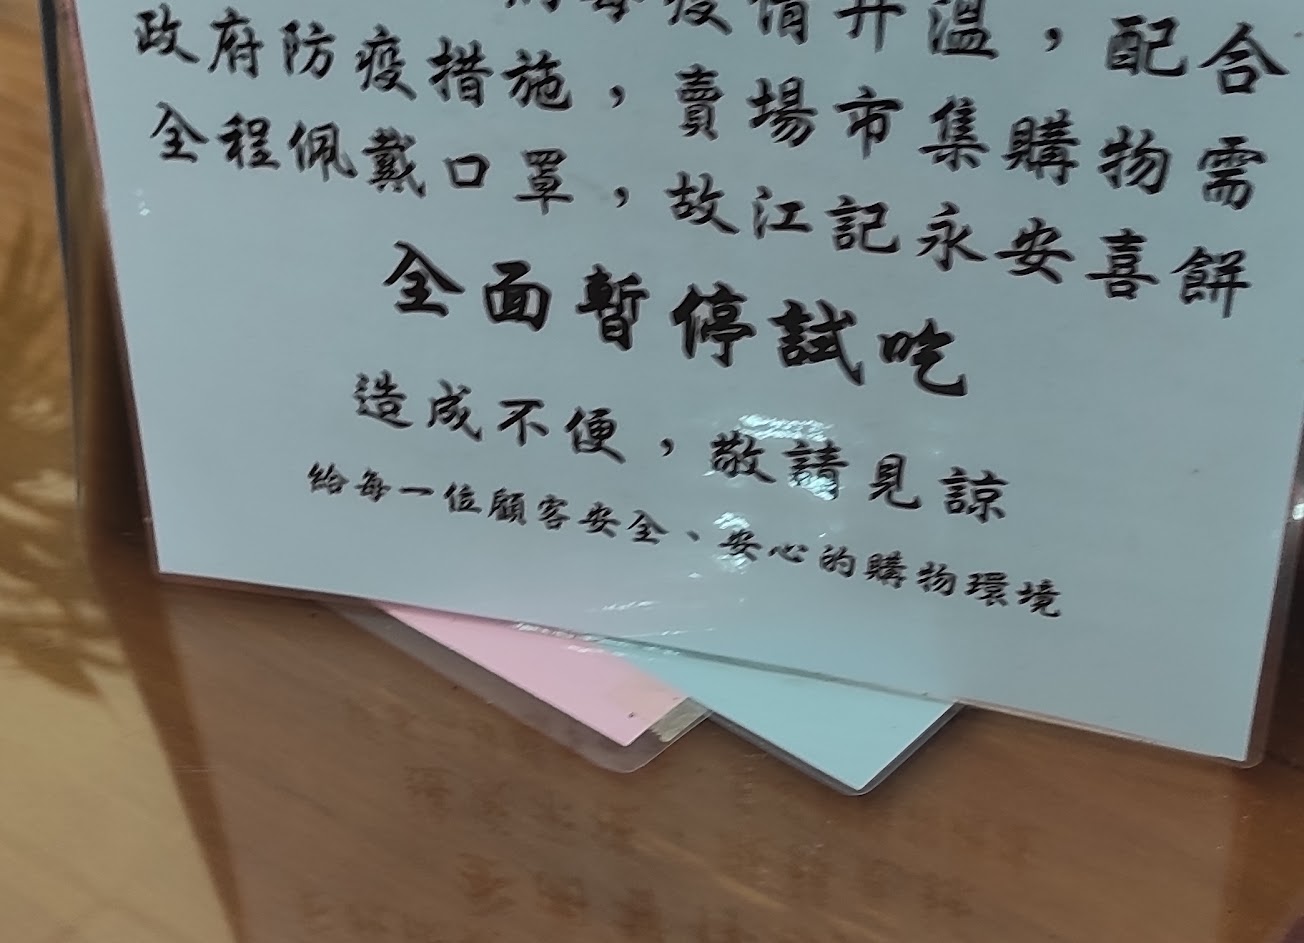 病毒疫情升溫，配合
政府防疫措施，賣場市集購物需
全程佩戴口罩，故江記永安喜餅
全面暫停試吃
造成不便，敬請見諒
給每一位顧客安全、安心的購物環境